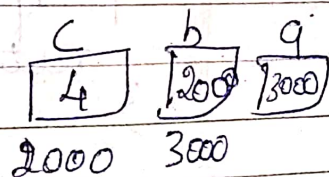 c b a
4 2000 3000
2000 3000